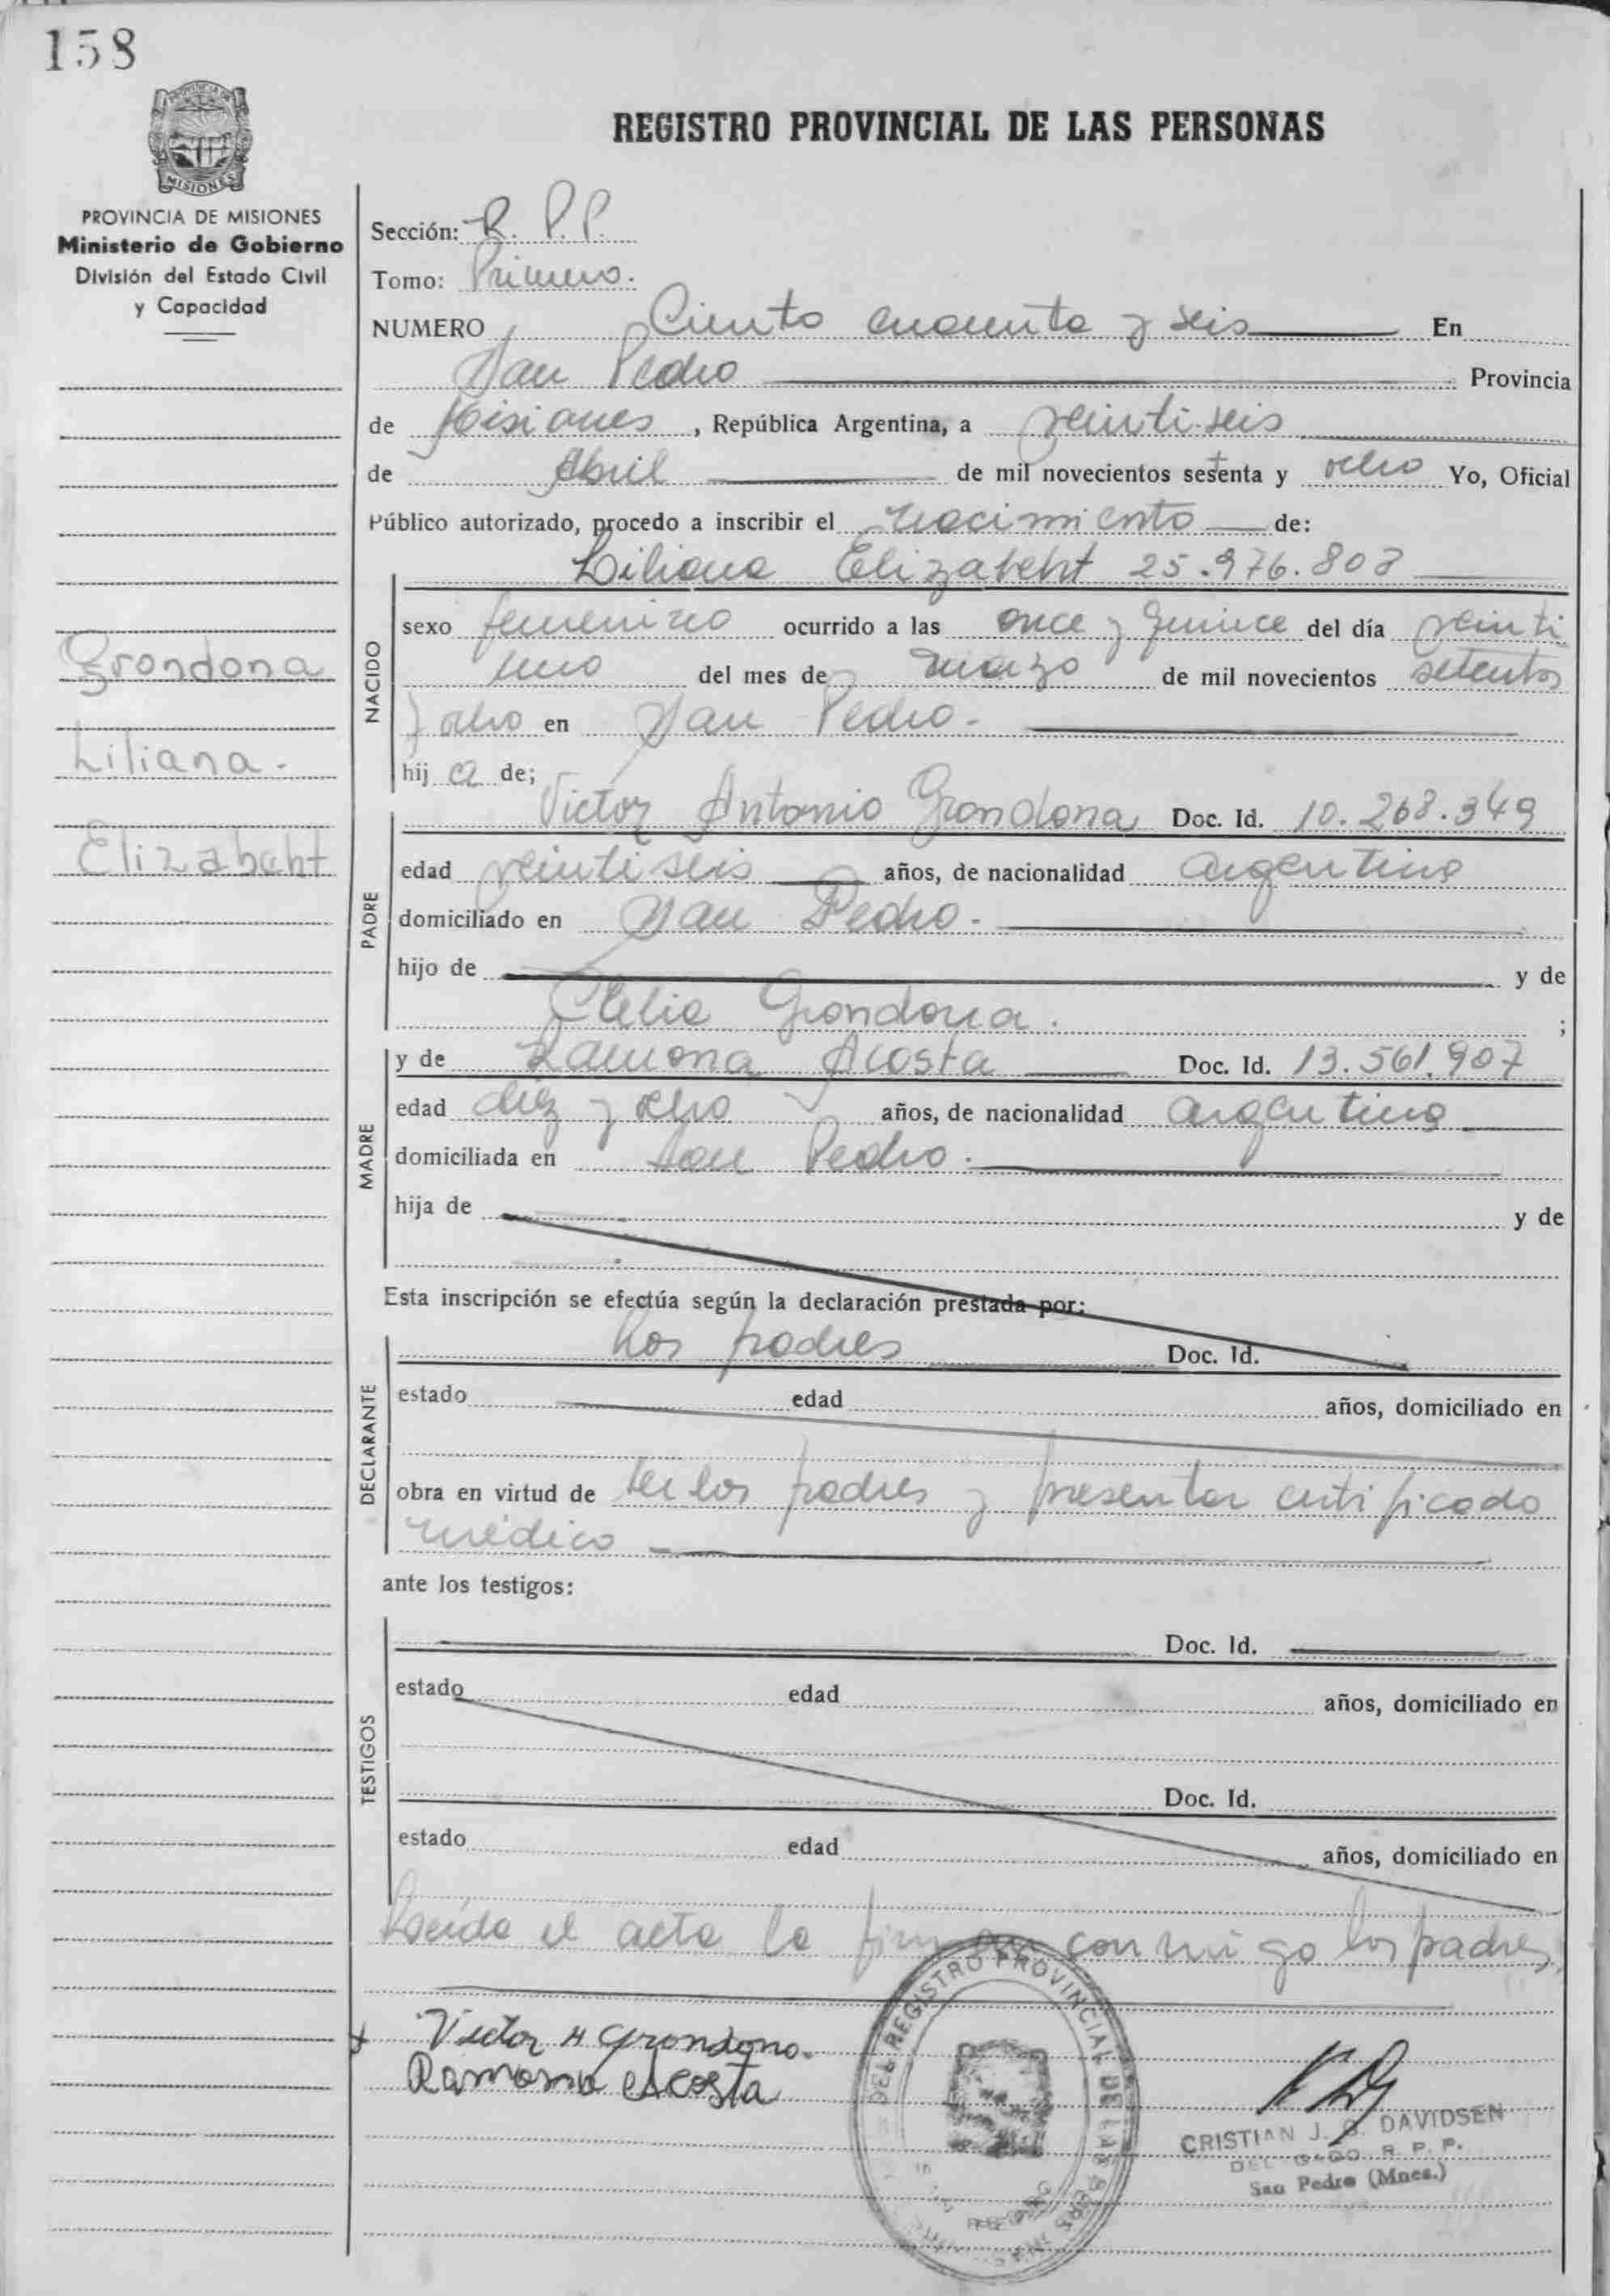 158
PROVINCIA DE MISIONES
MISIONES
PROVINCIA DE MISIONES
Ministerio de Gobierno
División del Estado Civil
y Capacidad
Grondona
Liliana.
Elizabeht
REGISTRO PROVINCIAL DE LAS PERSONAS
Sección: R. P.P.
Tomo: Primero.
NUMERO Ciento cuarenta y seis En
San Pedro Provincia
de Misiones, República Argentina, a veinti seis
de Abril de mil novecientos setenta y ocho Yo, Oficial
Público autorizado, procedo a inscribir el nacimiento de:
Liliana Elizabeht 25.976.803
NACIDO
sexo femenino ocurrido a las once y quince del día veinti
uno del mes de marzo de mil novecientos setenta
y ocho en San Pedro.
hij a de;
Victor Antonio Grondona Doc. Id. 10.268.349
PADRE
edad veinti seis años, de nacionalidad argentina
domiciliado en San Pedro.
hijo de y de
Clelia Grondona. ;
y de Ramona Acosta Doc. Id. 13.561.907
MADRE
edad diez y ocho años, de nacionalidad argentina
domiciliada en San Pedro.
hija de y de
Esta inscripción se efectúa según la declaración prestada por:
Los padres Doc. Id.
DECLARANTE
estado edad años, domiciliado en
obra en virtud de ser los padres y presentar certificado
médico
ante los testigos:
Doc. Id.
TESTIGOS
estado edad años, domiciliado en
Doc. Id.
estado edad años, domiciliado en
Leída el acta la firman conmigo los padres
Victor A Grondona.
Ramona Acosta
DEL REGISTRO PROVINCIAL DE LAS
CRISTIAN J. DAVIDSEN
R. P. P.
San Pedro (Mnes.)